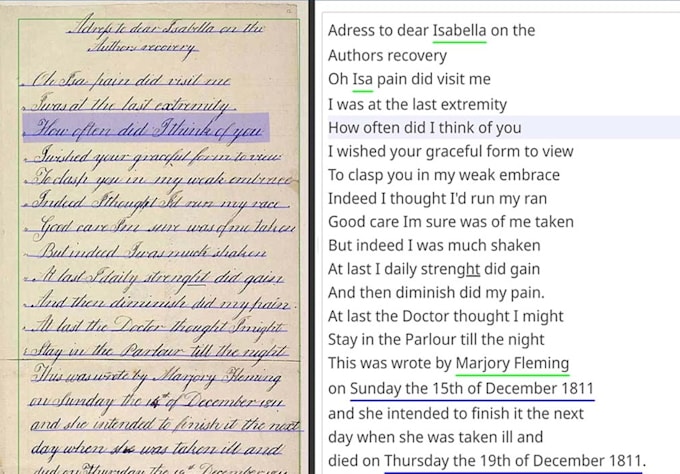 Adress to dear Isabella on the
Authors recovery
Oh Isa pain did visit me
I was at the last extremity
How often did I think of you
I wished your graceful form to view
To clasp you in my weak embrace
Indeed I thought Id run my race
Good care Im sure was of me taken
But indeed I was much shaken
At last I daily strenght did gain
And then diminish did my pain.
At last the Doctor thought I might
Stay in the Parlour till the night
This was wrote by Marjory Fleming
on Sunday the 15th of December 1811
and she intended to finish it the next
day when she was taken ill and
died on Thursday the 19th December 1811
Adress to dear Isabella on the
Authors recovery
Oh Isa pain did visit me
I was at the last extremity
How often did I think of you
I wished your graceful form to view
To clasp you in my weak embrace
Indeed I thought I'd run my ran
Good care Im sure was of me taken
But indeed I was much shaken
At last I daily strenght did gain
And then diminish did my pain.
At last the Doctor thought I might
Stay in the Parlour till the night
This was wrote by Marjory Fleming
on Sunday the 15th of December 1811
and she intended to finish it the next
day when she was taken ill and
died on Thursday the 19th of December 1811.